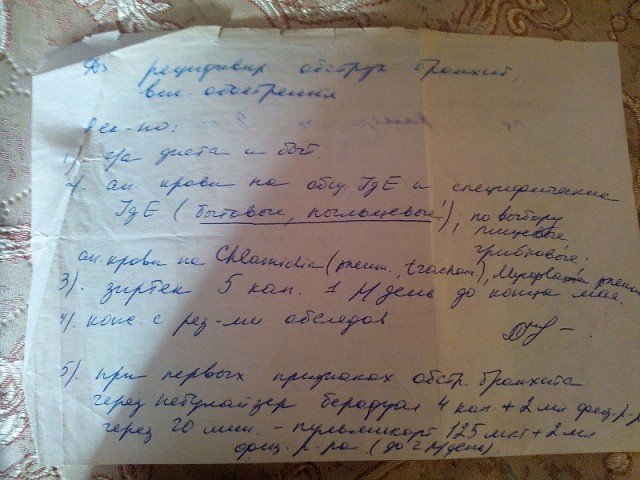 Дз рецидивир. обструк. бронхит,
вне обострения
Рек-но:
1). г/а диета и быт.
2). ан. крови на общ. IgE и специфические
IgE (бытовые, пыльцевые), по выбору
пищевые
грибковые.
ан. крови на Chlamidia (pneum., trachom), Mycoplasma pneum.
3). зиртек 5 кап. 1 р/день до конца мая.
4). конс. с рез-ми обследов
5). при первых признаках обстр. бронхита
через небулайзер беродуал 4 кап + 2 мл физ. р-р
через 20 мин. - пульмикорт 125 мкг + 2 мл
физ. р-ра (до 2 р/день).